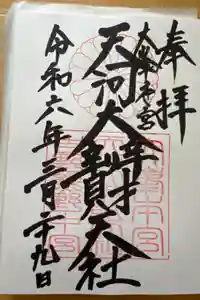 奉拝
大峯本宮
天河大辨財天社
令和六年三月二十九日